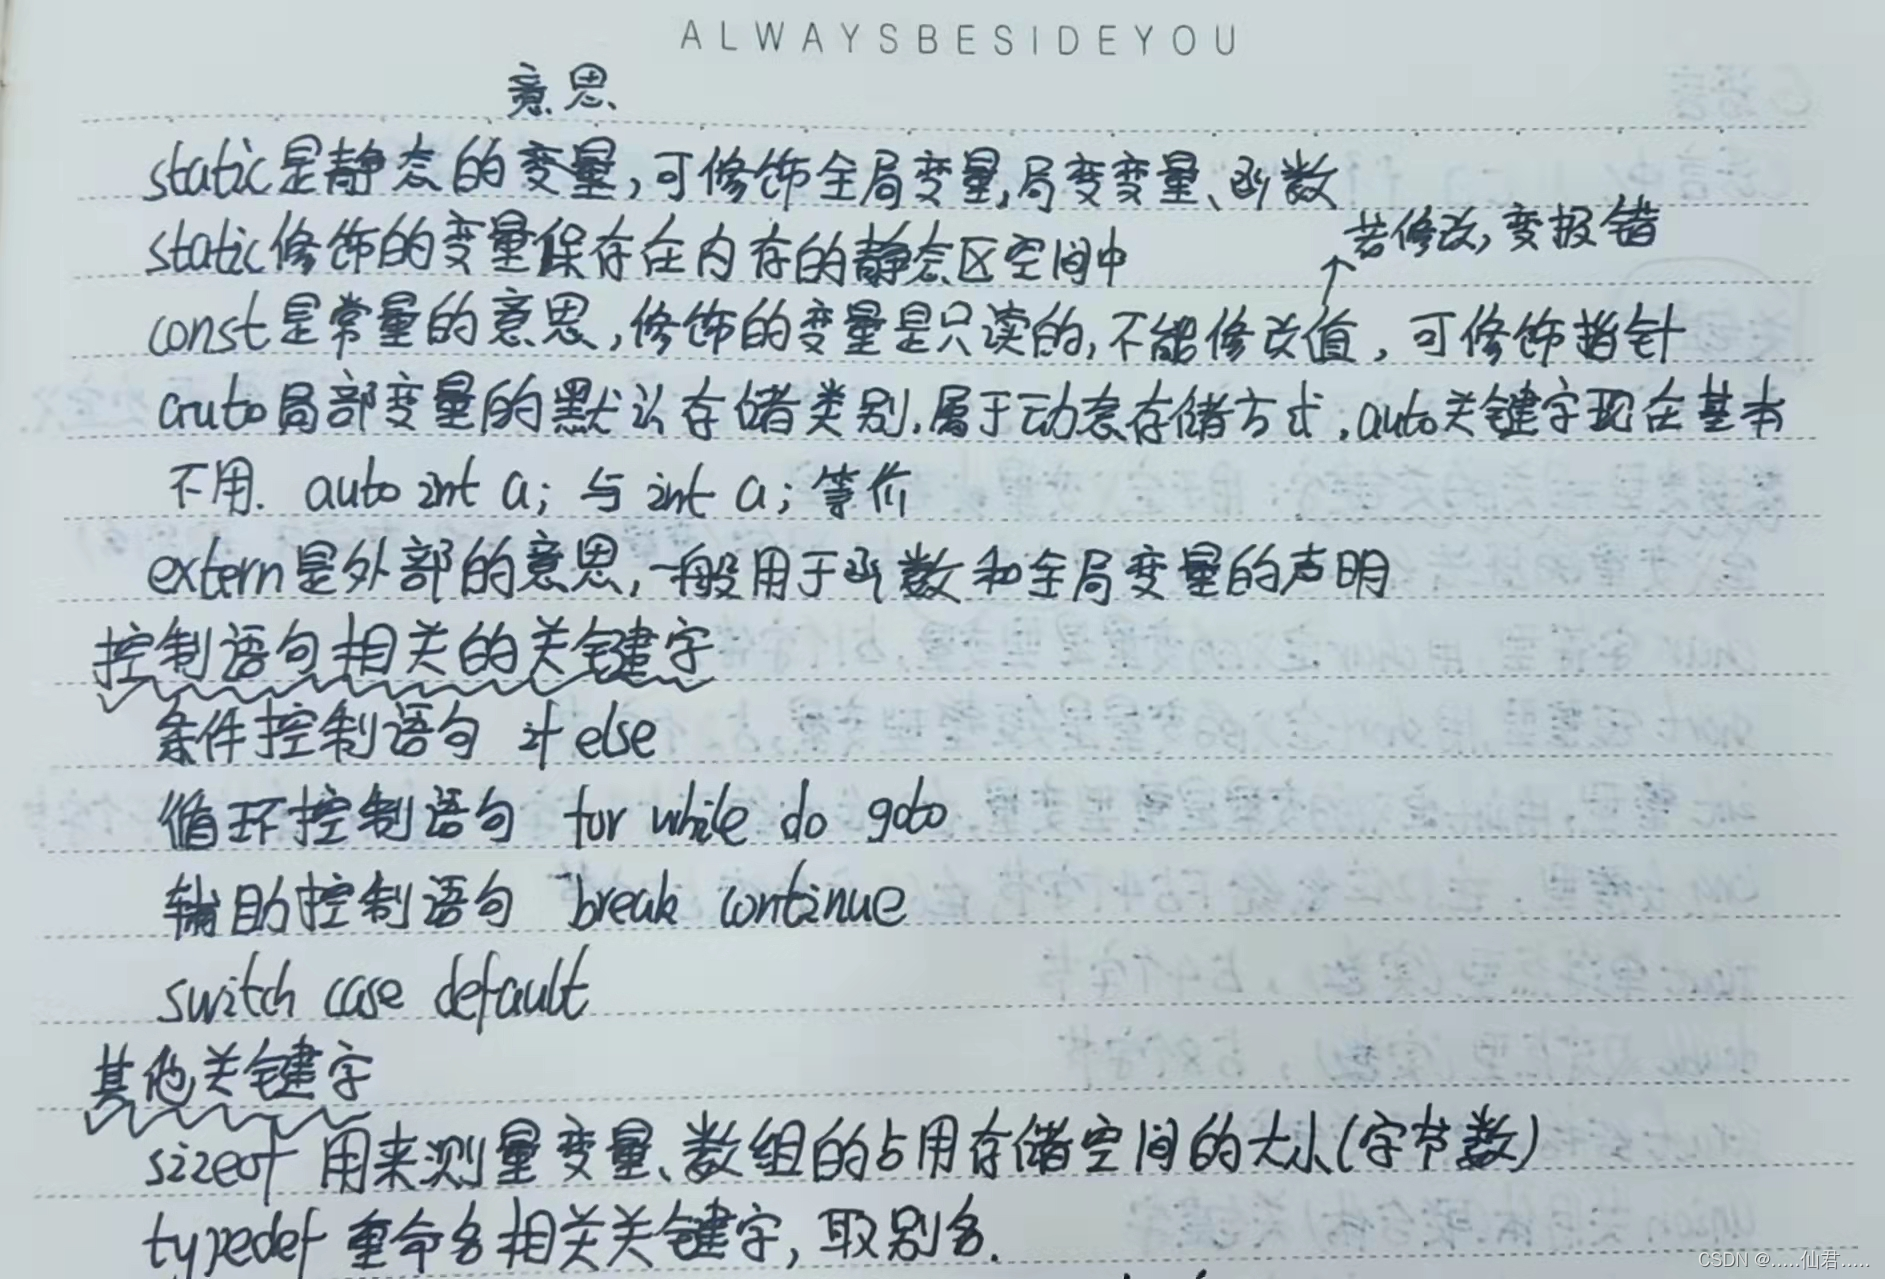 ALWAYSBESIDEYOU
意思
static是静态的变量,可修饰全局变量,局变变量、函数
若修改,变报错
static修饰的变量保存在内存的静态区空间中
const是常量的意思,修饰的变量是只读的,不能修改值,可修饰指针
auto局部变量的默认存储类别,属于动态存储方式,auto关键字现在基本
不用. auto int a; 与 int a; 等价
extern是外部的意思,一般用于函数和全局变量的声明
控制语句相关的关键字
条件控制语句 if else
循环控制语句 for while do goto
辅助控制语句 break continue
switch case default
其他关键字
sizeof 用来测量变量、数组的占用存储空间的大小(字节数)
typedef 重命名相关关键字,取别名.
CSDN @.....仙君.....